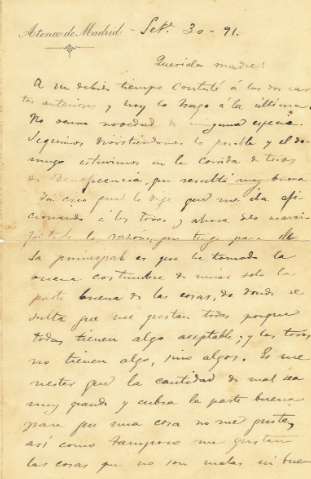 Ateneo de Madrid - Setbre 30 - 91.
Querida madre:
A su debido tiempo contesté á las dos car
tas anteriores y hoy lo hago á la última.
No ocurre novedad de ninguna especie.
Seguimos divirtiéndonos lo posible y el do
mingo estuvimos en la corrida de toros
de Beneficencia, que resultó muy buena
Ya creo que le dije que me iba afi
cionando á los toros, y ahora
la razón que tengo para ello
La primera es que he tomado la
buena costumbre de mirar solo la
parte buena de las cosas, de donde re
sulta que me gustan todas porque
todas tienen algo aceptable, y los toros
no tienen algo, sino algos. Es me
nester que la cantidad de mal sea
muy grande y cubra la parte buena
para que una cosa no me guste,
así como tampoco me gustan
las cosas que no son malas ni buen